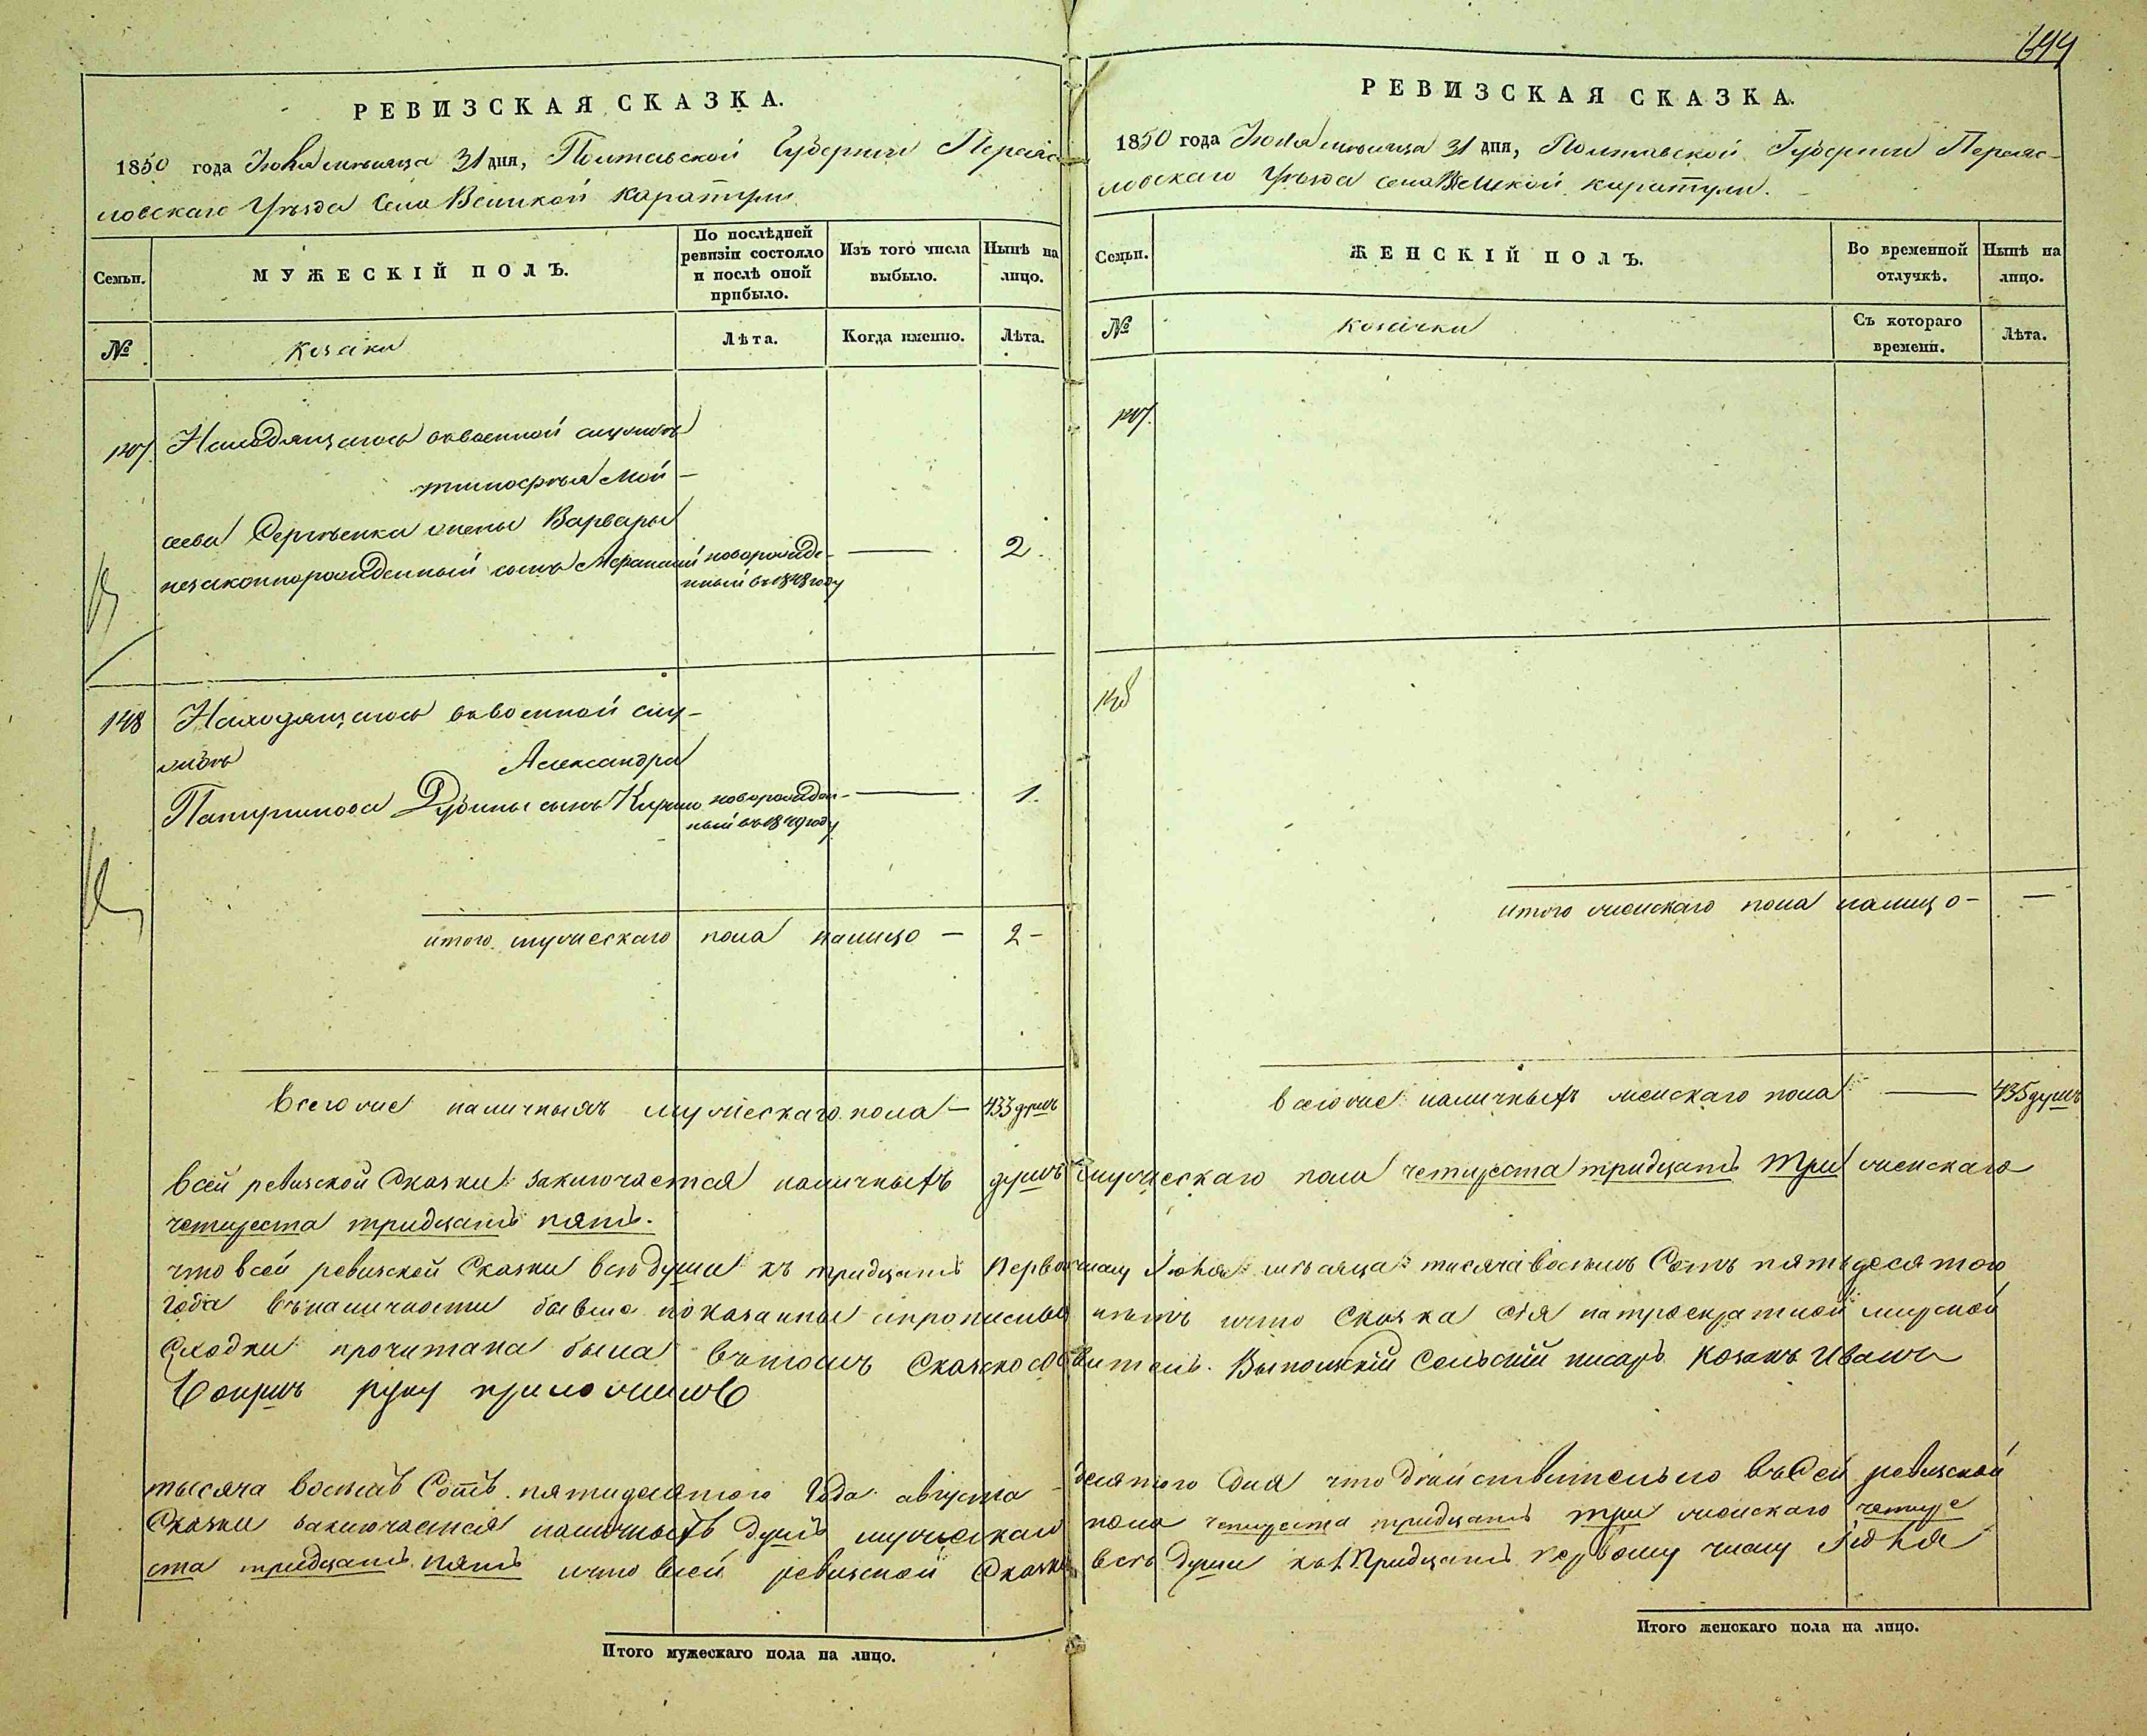 644
РЕВИЗСКАЯ СКАЗКА.
1850 года Іюля мѣсяца 31 дня, Полтавской Губерніи Переяс-
ловскаго Уѣзда Села Великой Каратули
Семьи.
МУЖЕСКІЙ ПОЛЪ.
По послѣдней
ревизіи состояло
и послѣ оной
прибыло.
Изъ того числа
выбыло.
Нынѣ на
лицо.
№
Козаки
Лѣта.
Когда именно.
Лѣта.
147.
Находящагося въ военной службѣ
Тимофѣя Мой-
сеева Сергѣенка жены Варвары
незаконнорожденный сынъ
новорожде-
нный въ 1848 году
2.
148
Находящагося въ военной слу-
жбѣ
Александра
Дубины сынъ
новорожден-
ный въ 1849 году
1.
итого мужескаго пола налицо — 2 —
Всего же наличныхъ мужескаго пола — 433 душъ
РЕВИЗСКАЯ СКАЗКА.
1850 года Іюля мѣсяца 31 дня, Полтавской Губерніи Переяс-
ловскаго Уѣзда села Великой Каратули.
Семьи.
ЖЕНСКІЙ ПОЛЪ.
Во временной
отлучкѣ.
Нынѣ на
лицо.
№
Козачки
Съ котораго
времени.
Лѣта.
147.
148
итого женскаго пола налицо — —
всего же наличныхъ женскаго пола — 435 душъ
Всей ревизской Сказки заключается наличныхъ душъ мужескаго пола четыреста тридцать три женскаго
четыреста тридцать пять.
что всей ревизской Сказки всѣ души къ тридцать Первому числу Іюля мѣсяца тысяча восемь Сотъ пятьдесятого
года въ наличности бывшие показанны и прописныхъ нѣтъ и что Сказка сія на троекратной мирской
Сходки прочитана была въ томъ Сказкосоставитель. Сельскій писарь Козакъ Иванъ
руку приложилъ
тысяча восемь Сотъ пятидесятого Года августа десятого Дня что Дѣйствительно въ Сей ревизской
Сказки заключается наличныхъ Душъ мужескаго пола четыреста тридцать три женскаго четыре
ста тридцать пять и что всей ревизской Сказки всѣ души къ тридцать первому числу Іюля
Итого мужескаго пола на лицо.
Итого женскаго пола на лицо.